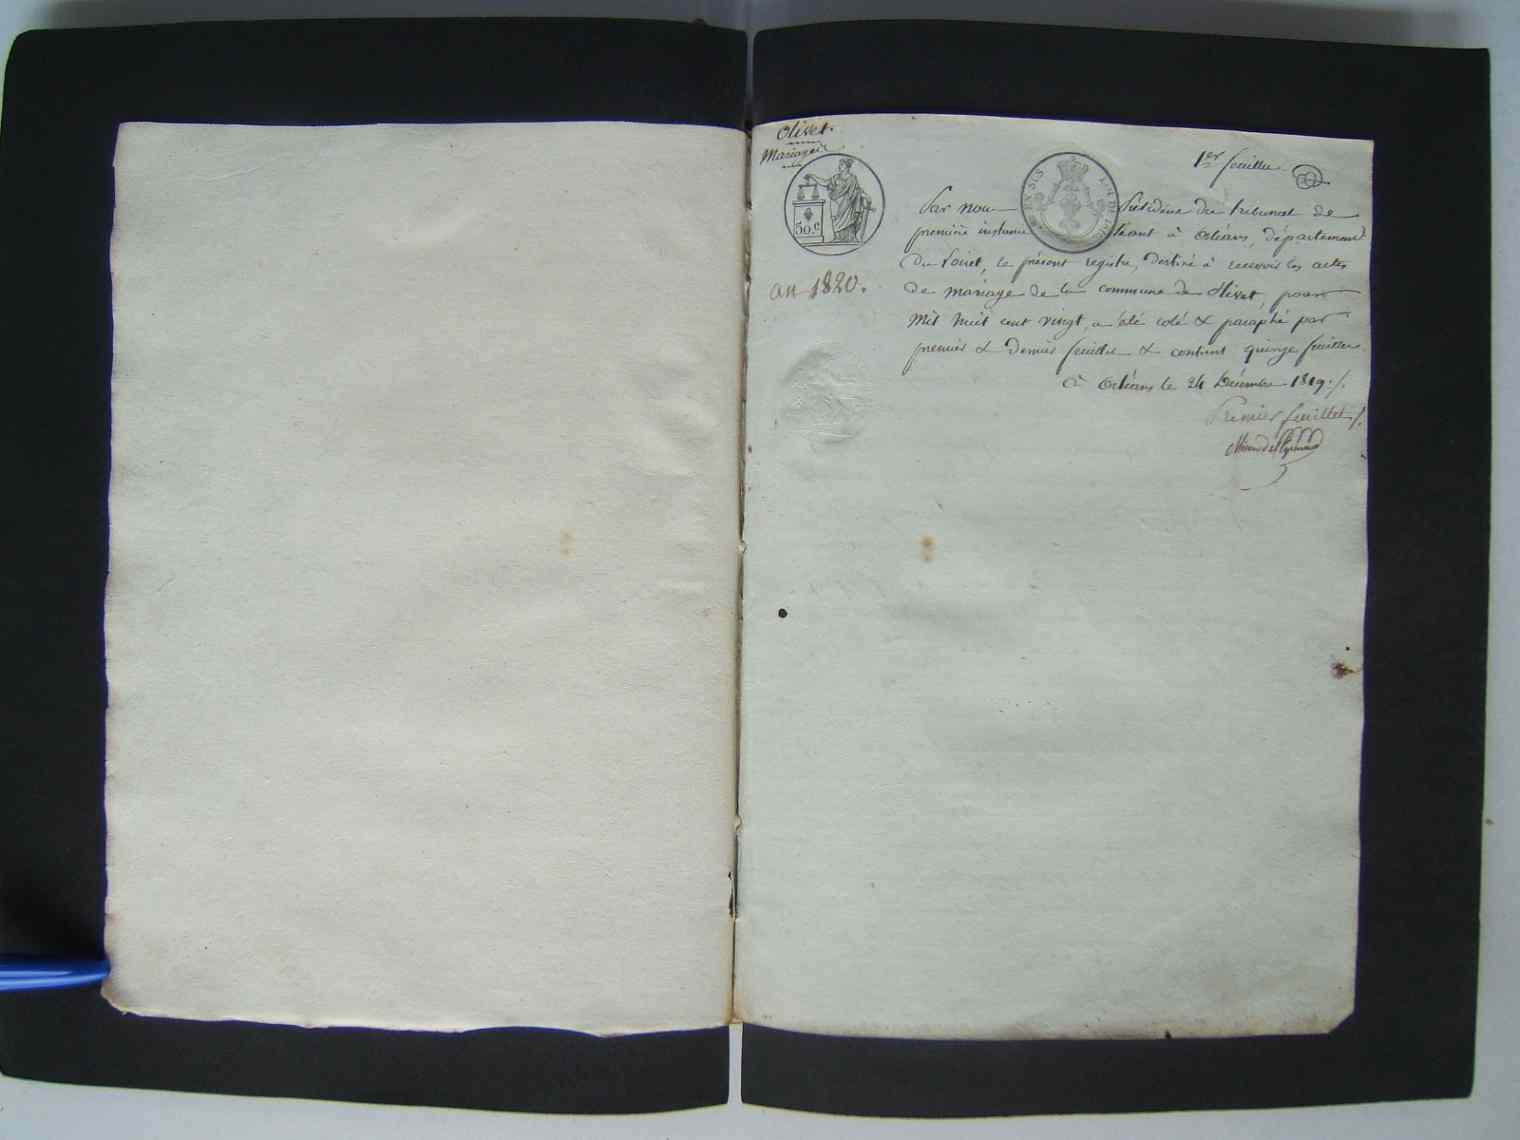 Olivet.
Mariages
1er feuillet
30.c
EN SUS
an 1820.
Par nous Président du tribunal de
première instance séant à Orléans, département
du Loiret, le présent registre, destiné à recevoir les actes
de mariage de la commune de Olivet, pour
mil huit cent vingt, a été coté & paraphé par
premier & dernier feuillet & contient quinze feuillets.
à Orléans le 24 Décembre 1819./.
Premier feuillet/.